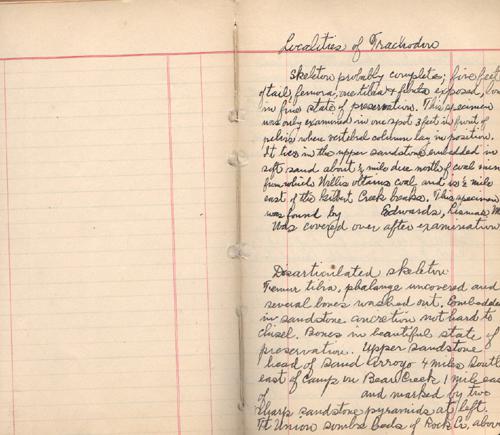 Localities of Trachodon
Skeleton probably complete; five feet
of tail, femora, one tibia & fibula exposed, bone
in fine state of preservation. This specimen
was only examined in one spot 3 feet in front of
pelvis where vertebral column lay in position.
It lies in the upper sandstone embedded in
soft sand about ½ mile due north of coal mine
from which Willis obtains coal and is ½ mile
east of the Gilbert Creek breaks. This specimen
was found by Edwards, Lismas M
Was covered over after examination
Disarticulated skeleton
Femur tibia, phalange uncovered and
several bones washed out. Imbedded
in sandstone concretion not hard to
chisel. Bones in beautiful state of
preservation. Upper sandstone
head of Sand Arroyo 4 miles South
east of Camp on Bear Creek 1 mile east
of and marked by two
large sandstone pyramids at left.
Ft Union beds of Rock Co, above